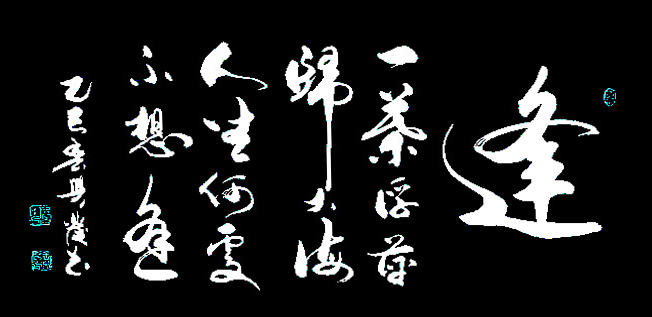 逢
一葉浮萍
歸大海
人生何處
不想逢
乙巳